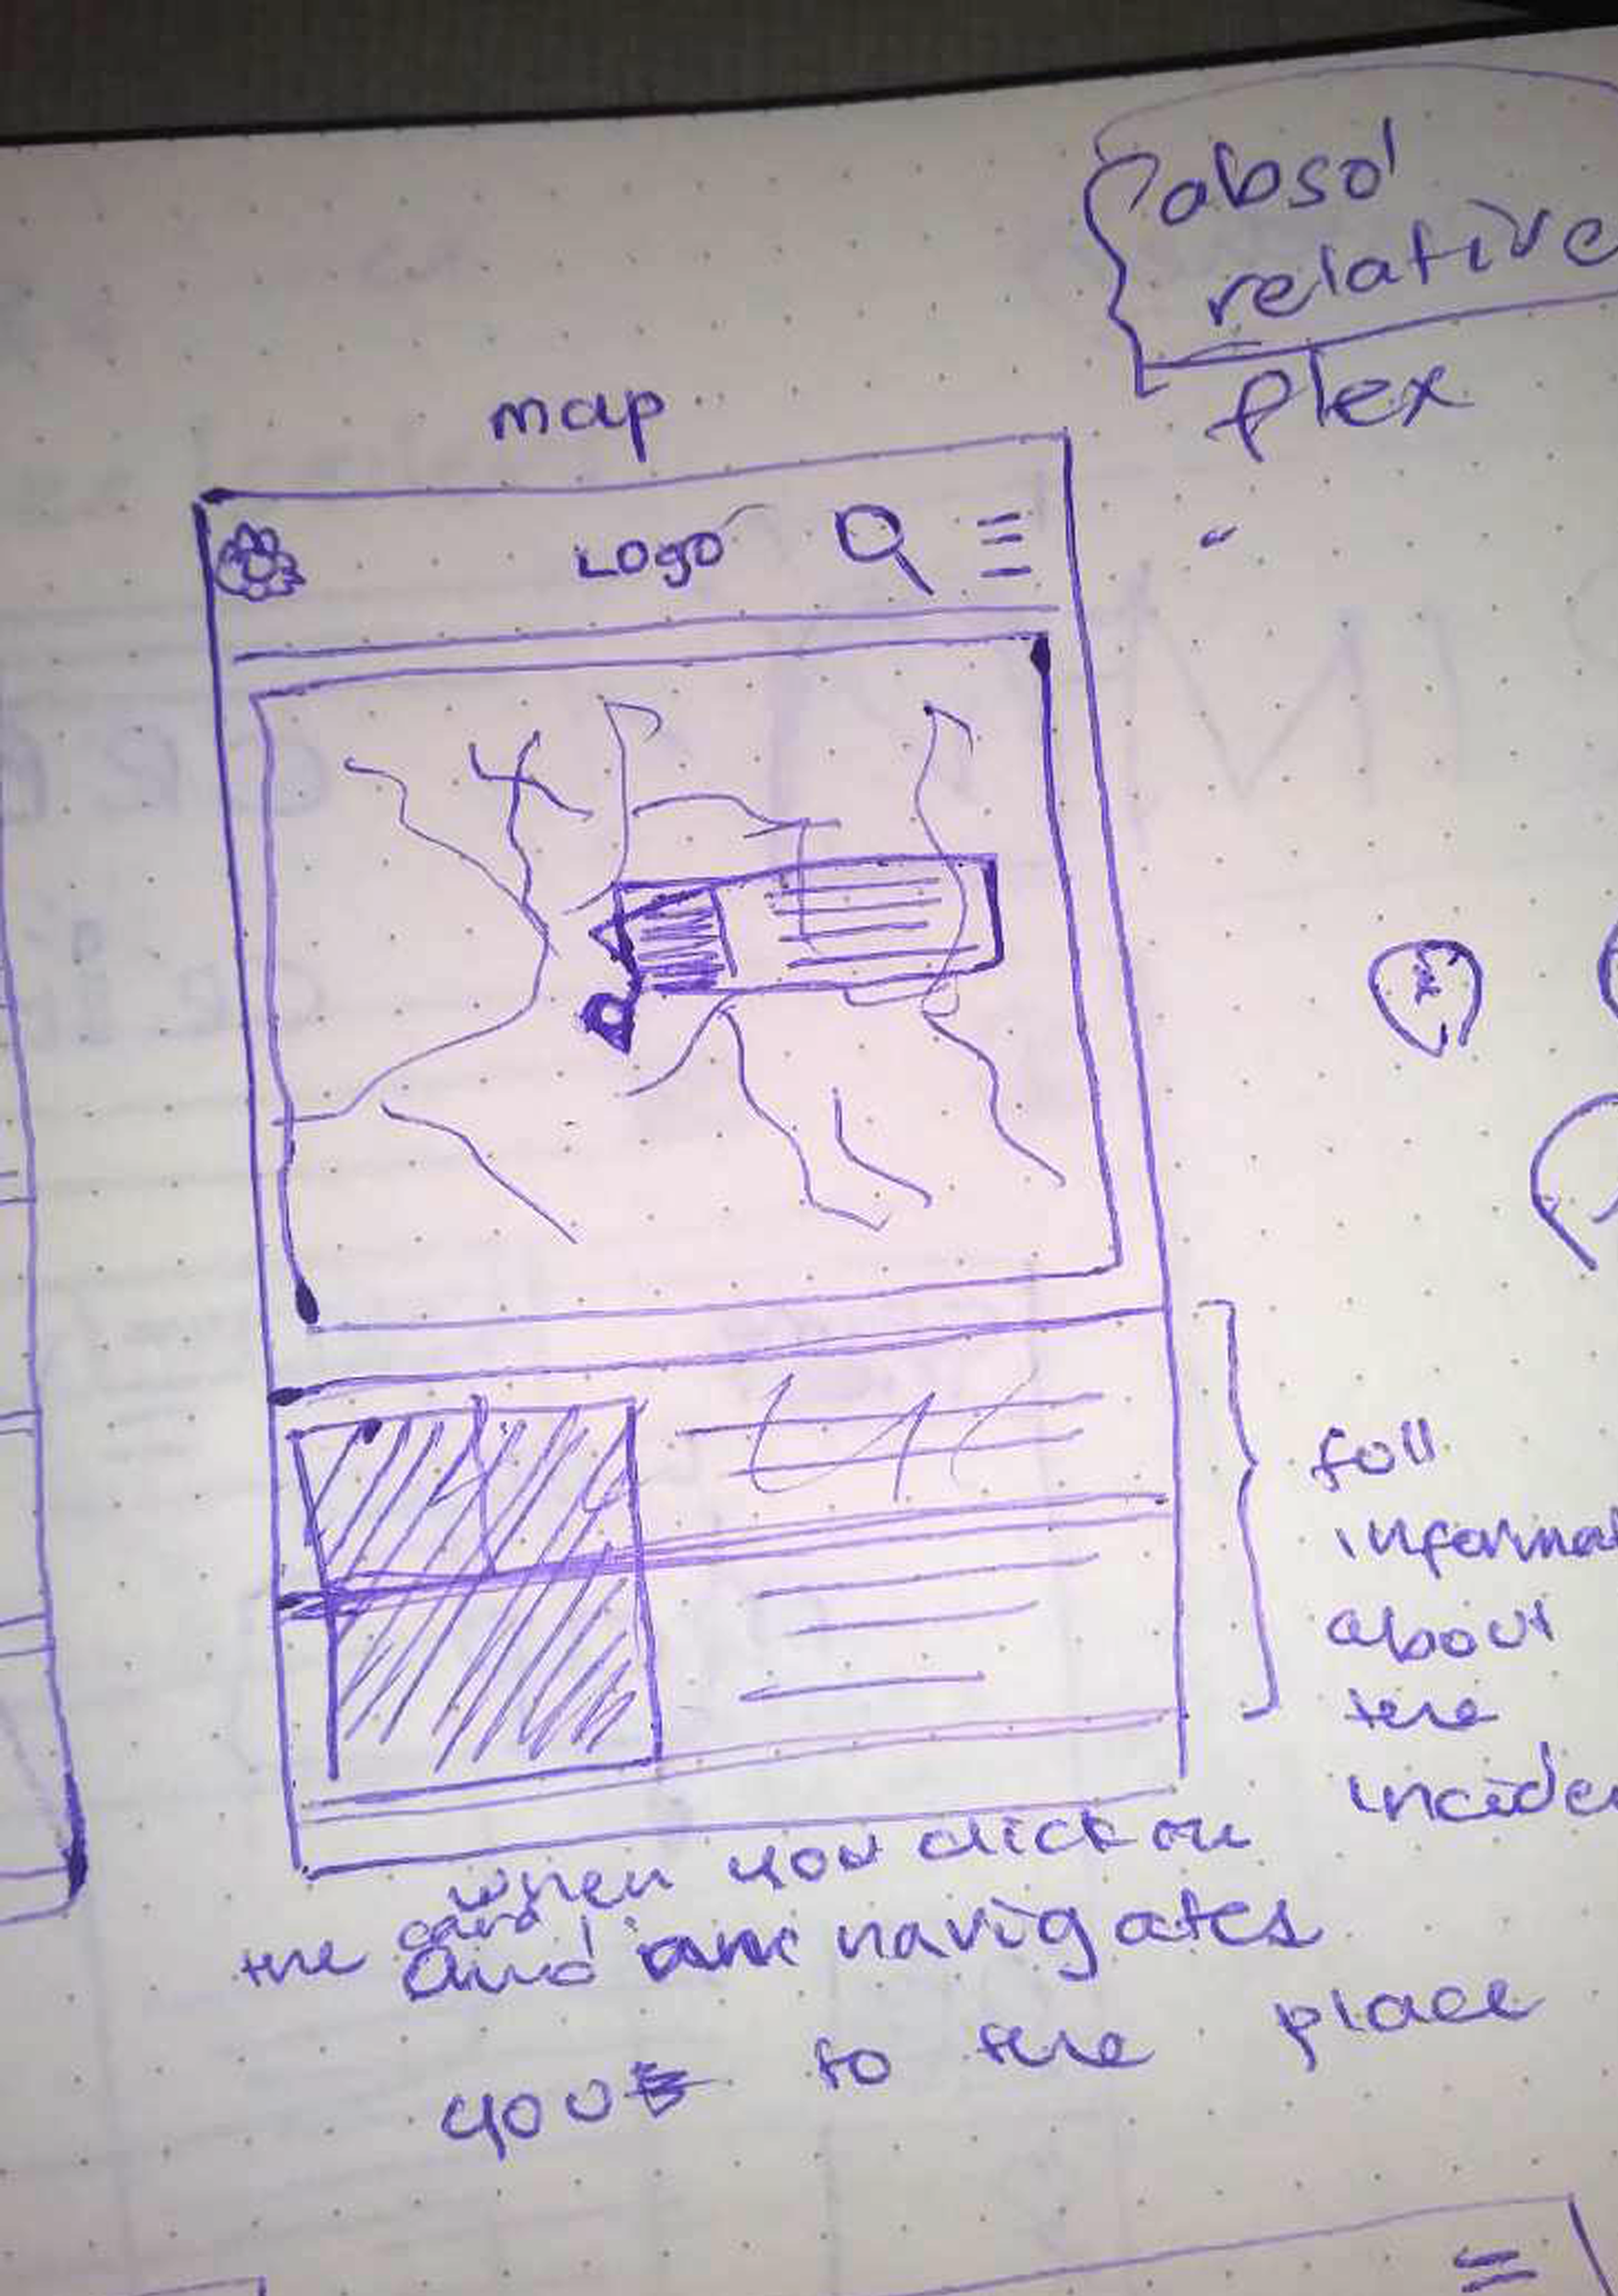 absol
relative
flex
map
Logo
foll
informat
about
the
incide
when you click on
the card
and navigates
you to the place